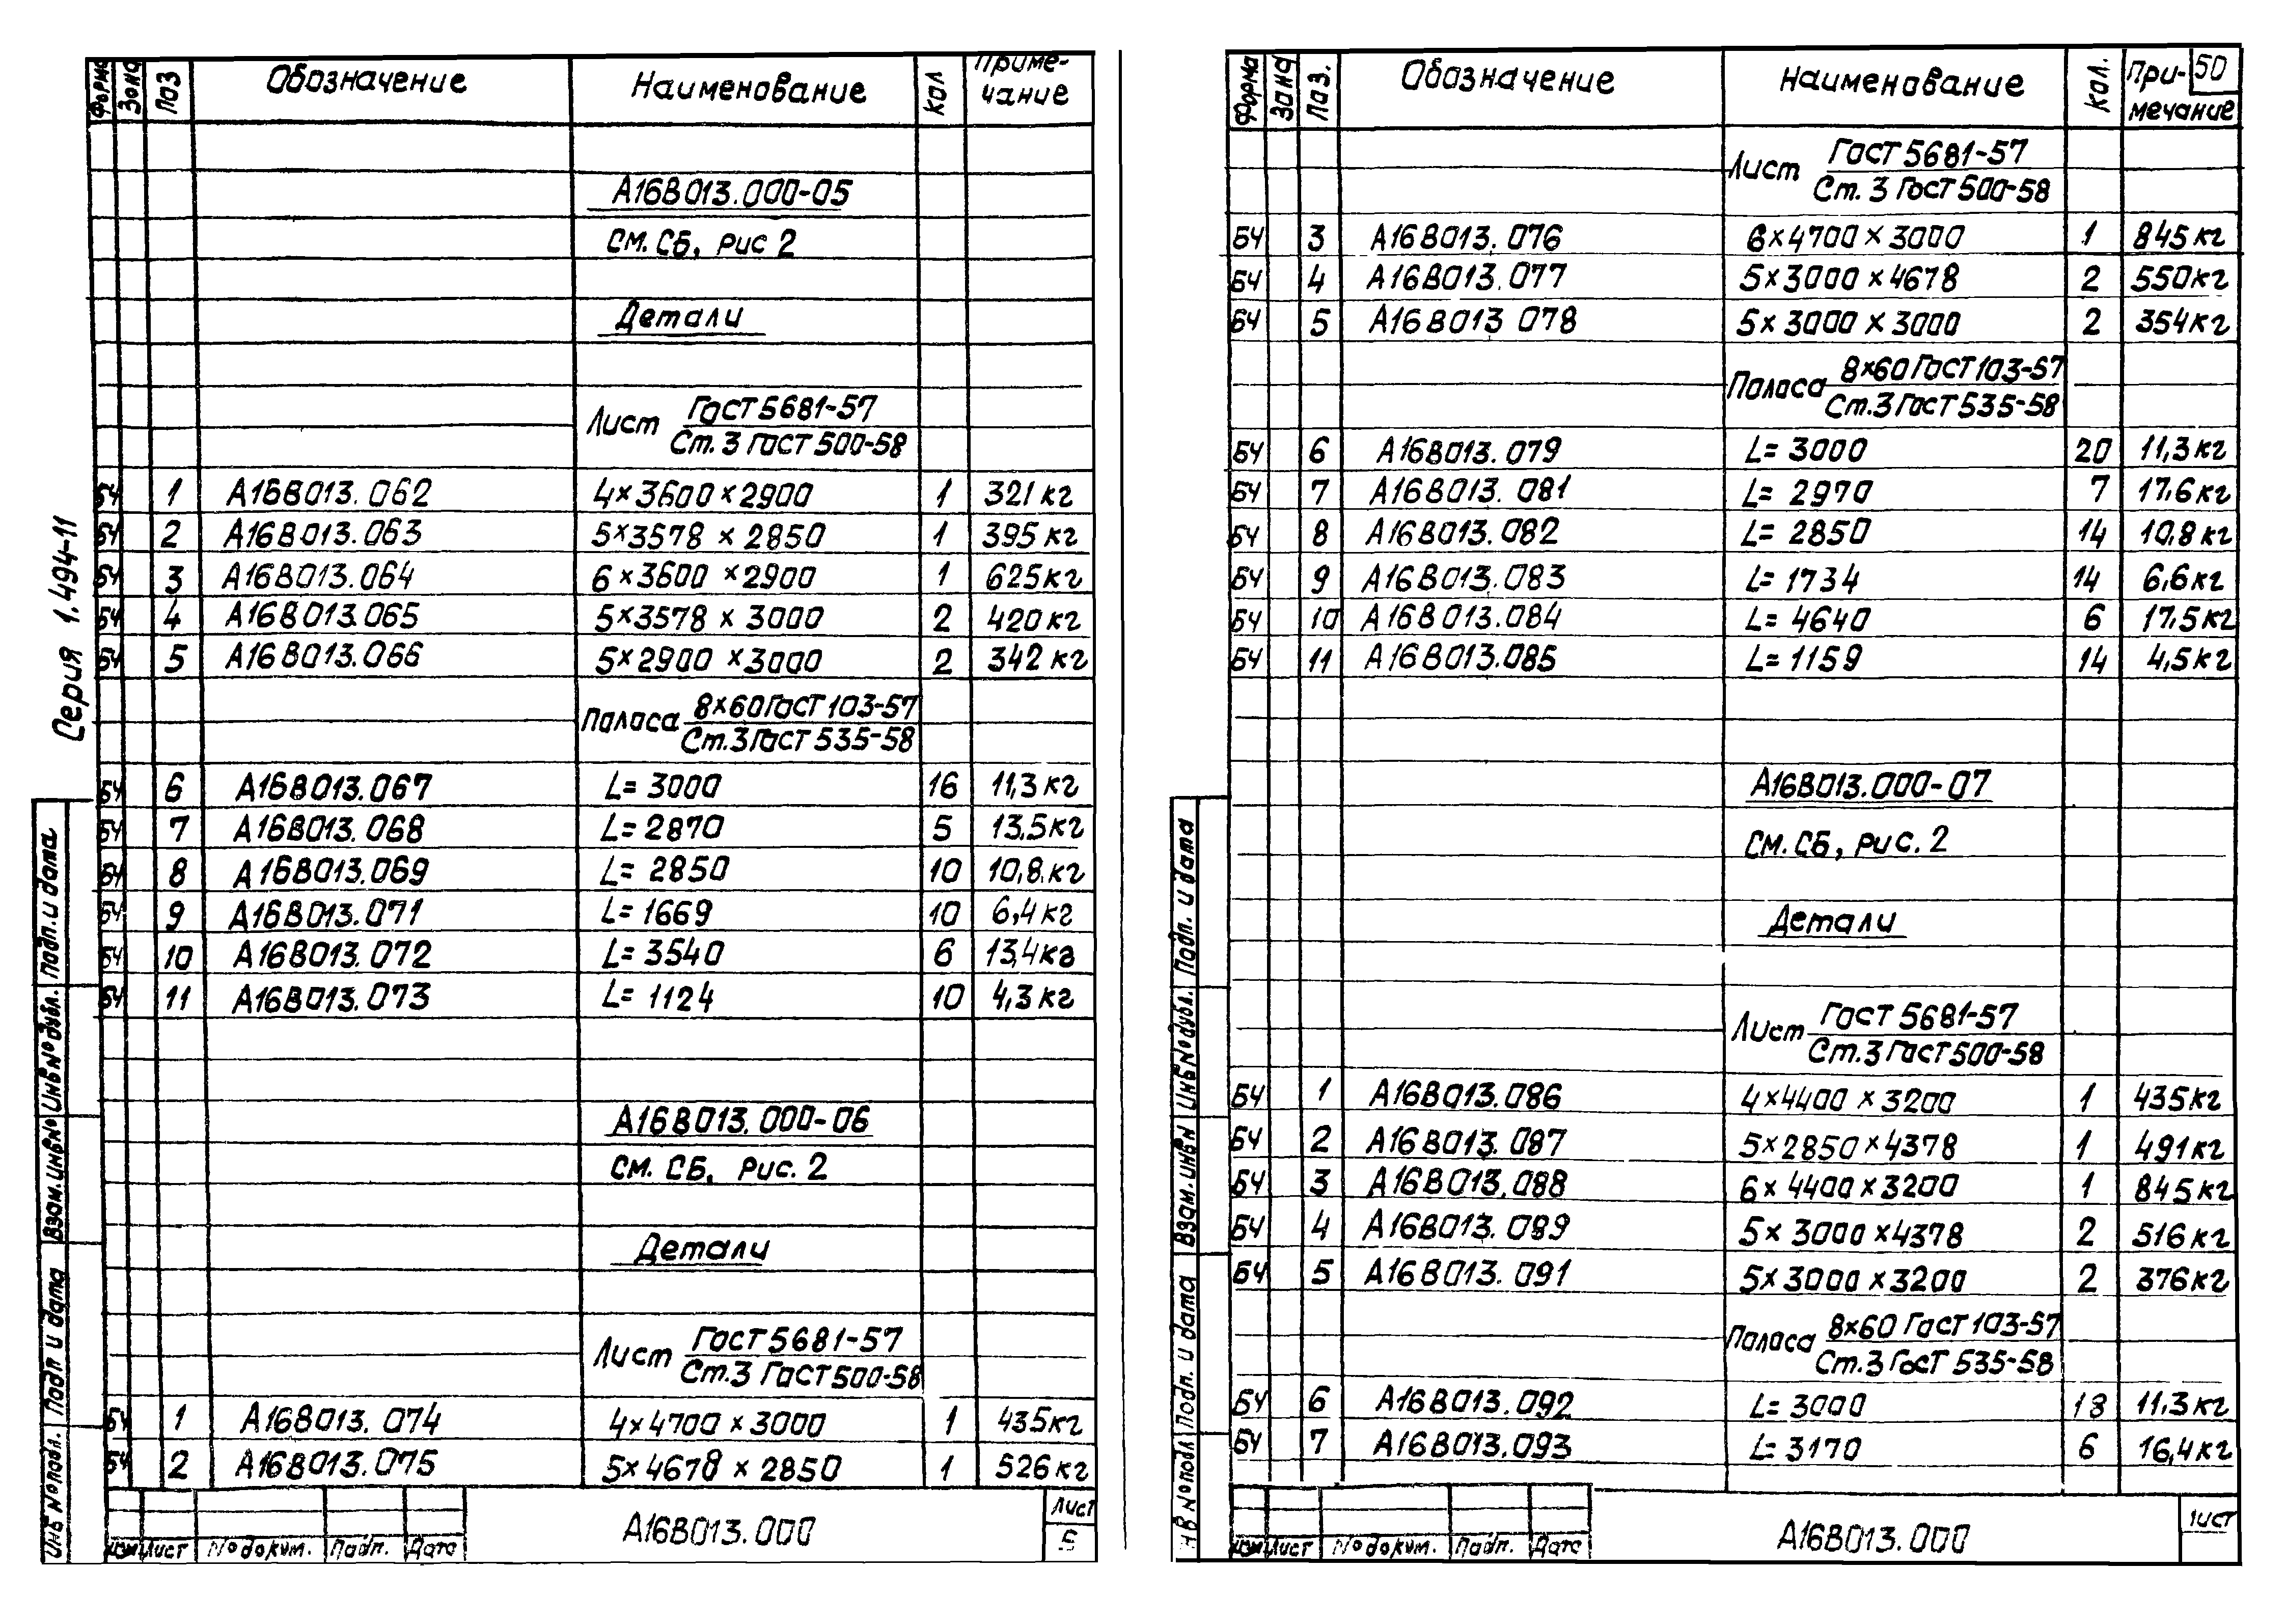 Форма Зона Поз Обозначение Наименование Кол Приме-
чание
А16В013.000-05
См. СБ, рис 2
Детали
Лист ГОСТ 5681-57
Ст. 3 ГОСТ 500-58
БЧ 1 А16В013.062 4×3600×2900 1 321 кг
БЧ 2 А16В013.063 5×3578×2850 1 395 кг
БЧ 3 А16В013.064 6×3600×2900 1 625 кг
БЧ 4 А16В013.065 5×3578×3000 2 420 кг
БЧ 5 А16В013.066 5×2900×3000 2 342 кг
Полоса 8×60 ГОСТ 103-57
Ст.3 ГОСТ 535-58
БЧ 6 А16В013.067 L=3000 16 11,3 кг
БЧ 7 А16В013.068 L=2870 5 13,5 кг
БЧ 8 А16В013.069 L=2850 10 10,8 кг
БЧ 9 А16В013.071 L=1669 10 6,4 кг
БЧ 10 А16В013.072 L=3540 6 13,4 кг
БЧ 11 А16В013.073 L=1124 10 4,3 кг
А16В013.000-06
См. СБ, рис. 2
Детали
Лист ГОСТ 5681-57
Ст.3 ГОСТ 500-58
БЧ 1 А16В013.074 4×4700×3000 1 435 кг
БЧ 2 А16В013.075 5×4678×2850 1 526 кг
Серия 1.494-11
Подп. и дата
Инв № дубл.
Взам. инв №
Подп и дата
Инв № подл.
Изм Лист № докум. Подп. Дата
А16В013.000
Лист
5
Форма Зона Поз. Обозначение Наименование Кол. При-
мечание
50
Лист ГОСТ 5681-57
Ст. 3 ГОСТ 500-58
БЧ 3 А16В013.076 6×4700×3000 1 845 кг
БЧ 4 А16В013.077 5×3000×4678 2 550 кг
БЧ 5 А16В013 078 5×3000×3000 2 354 кг
Полоса 8×60 ГОСТ 103-57
Ст.3 ГОСТ 535-58
БЧ 6 А16В013.079 L=3000 20 11,3 кг
БЧ 7 А16В013.081 L=2970 7 17,6 кг
БЧ 8 А16В013.082 L=2850 14 10,8 кг
БЧ 9 А16В013.083 L=1734 14 6,6 кг
БЧ 10 А16В013.084 L=4640 6 17,5 кг
БЧ 11 А16В013.085 L=1159 14 4,5 кг
А16В013.000-07
См. СБ, рис. 2
Детали
Лист ГОСТ 5681-57
Ст.3 ГОСТ 500-58
БЧ 1 А16В013.086 4×4400×3200 1 435 кг
БЧ 2 А16В013.087 5×2850×4378 1 491 кг
БЧ 3 А16В013.088 6×4400×3200 1 845 кг
БЧ 4 А16В013.089 5×3000×4378 2 516 кг
БЧ 5 А16В013.091 5×3000×3200 2 376 кг
Полоса 8×60 ГОСТ 103-57
Ст.3 ГОСТ 535-58
БЧ 6 А16В013.092 L=3000 18 11,3 кг
БЧ 7 А16В013.093 L=3170 6 16,4 кг
Подп. и дата
Инв № дубл.
Взам. инв №
Подп. и дата
нв № подл
Изм Лист № докум. Подп. Дата
А16В013.000
Лист